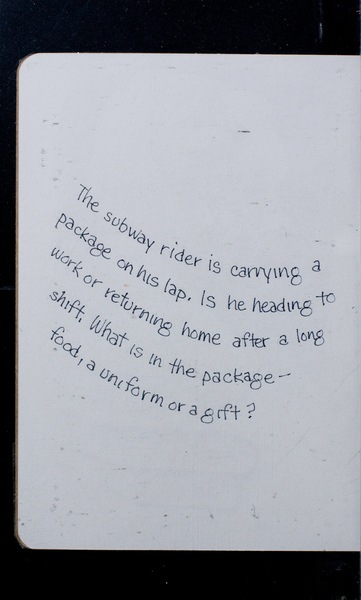 The subway rider is carrying a
package on his lap. Is he heading to
work or returning home after a long
shift. What is in the package—
food, a uniform or a gift?